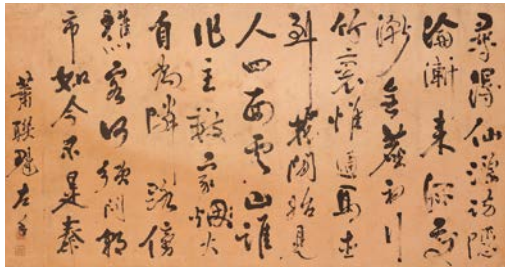 尋得仙源訪隱
淪漸來深處
漸無塵初行
竹裏惟通馬直
到花間始見
人四面雲山誰
作主數家煙火
自為隣路傍
樵客何須問朝
市如今不是秦
蕭聯魁左手